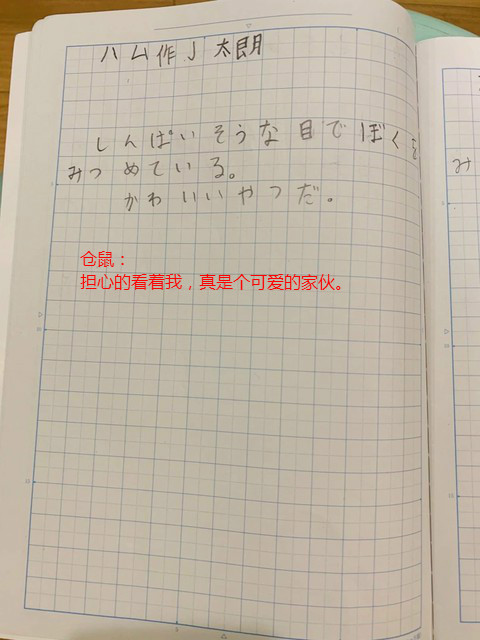 ハム作J 太朗
しんぱいそうな目でぼくを
みつめている。
かわいいやつだ。
仓鼠：
担心的看着我，真是个可爱的家伙。
み